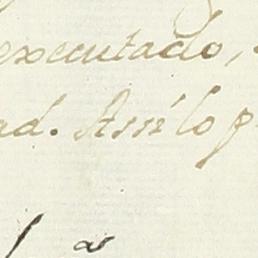 executado,
ad. Assi lo p